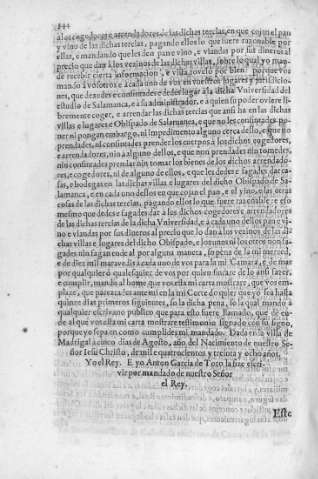 a los cogedores e arrendadores de las dichas tercias, en que cojan el pan
y vino de las dichas tercias, pagando ellos lo que fuere razonable por
ellas, e mandando que les den pan e vino, e viandas por sus dineros al
precio que dan a los vezinos de las dichas villas, sobre lo qual yo man-
de recibir cierta informacion, e vista, tovelo por bien: porque vos
mando a vosotros e a cada uno de vos en vuestros lugares y jurisdicio-
nes, que dexedes e consintades e dedes lugar a la dicha Vniversidad del
estudio de Salamanca, e a su administrador, e a quien su poder oviere li-
bremente coger, e arrendar las dichas tercias que ansi ha en las dichas
villas e lugares e Obispado de Salamanca, e que no les consintades po-
ner ni pongan embargo, ni impedimento alguno cerca dello, e que no
prendades, ni consintades prender los cuerpos a los dichos cogedores,
e arrendadores, ni a alguno dellos, e que non prendades nin tomedes,
nin consintades prendar nin tomar los bienes de los dichos arrendado-
res, e cogedores, ni de alguno dellos, e que les dedes e fagades dar ca-
sas, e bodegas en las dichas villas e lugares del dicho Obispado de Sa-
lamanca, e en cada uno dellos en que cojan el pan, e el vino, e las otras
cosas de las dichas tercias, pagando ellos lo que fuere razonable: e eso
mesmo que dedes e fagades dar a los dichos cogedores e arrendadores
de las dichas tercias de la dicha Vniversidad, e a cada uno dellos pan e vi-
no e viandas por sus dineros al precio que lo dan a los vezinos de las di-
chas villas e lugares del dicho Obispado, e los unos ni los otros non fa-
gades nin fagan ende al por alguna manera, so pena de la mi merced,
e de diez mil maravedis a cada uno de vos para la mi Camara, e de mas
por qualquier o qualesquier de vos por quien fincare de lo ansi fazer,
e complir, mando al home que vos esta mi carta mostrare, que vos em-
place, que parezcades ante mi en la mi Corte do quier que yo sea hasta
quinze dias primeros siguientes, so la dicha pena, so la qual mando a
qualquier escrivano publico que para esto fuere llamado, que dé en-
de al que vos esta mi carta mostrare testimonio signado con su signo,
porque yo sepa en como cumplides mi mandado. Dada en la villa de
Madrigal a cinco dias de Agosto, año del Nacimiento de nuestro Se-
ñor Iesu Christo, de mil e quatrocientos y treinta y ocho años,
Yo el Rey. E yo Anton Garcia de Toro la fize escri-
vir por mandado de nuestro Señor
el Rey.
Este